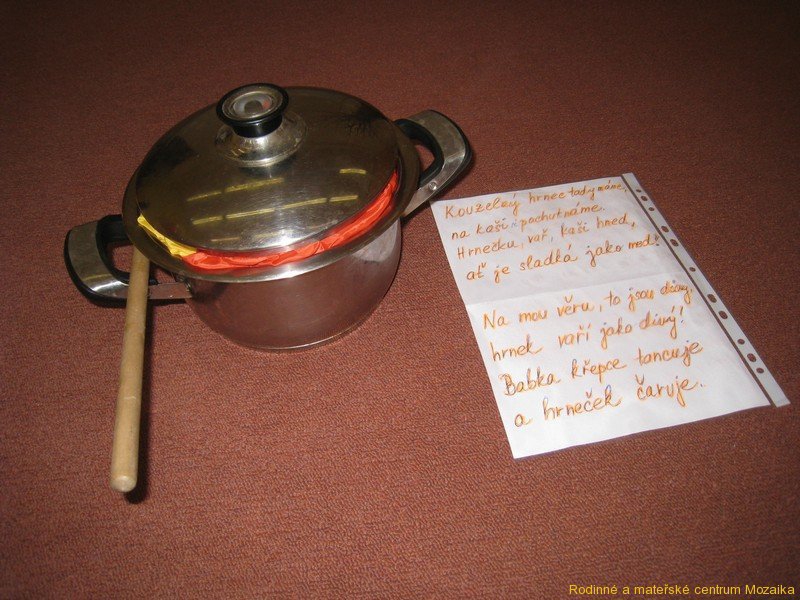 Kouzelný hrnec tady máme,
na kaši pochutnáme.
Hrnečku, vař, kaši hned,
ať je sladká jako med!
Na mou věru, to jsou divy,
hrnek vaří jako divý!
Babka křepce tancuje
a hrneček čaruje.
Rodinné a mateřské centrum Mozaika